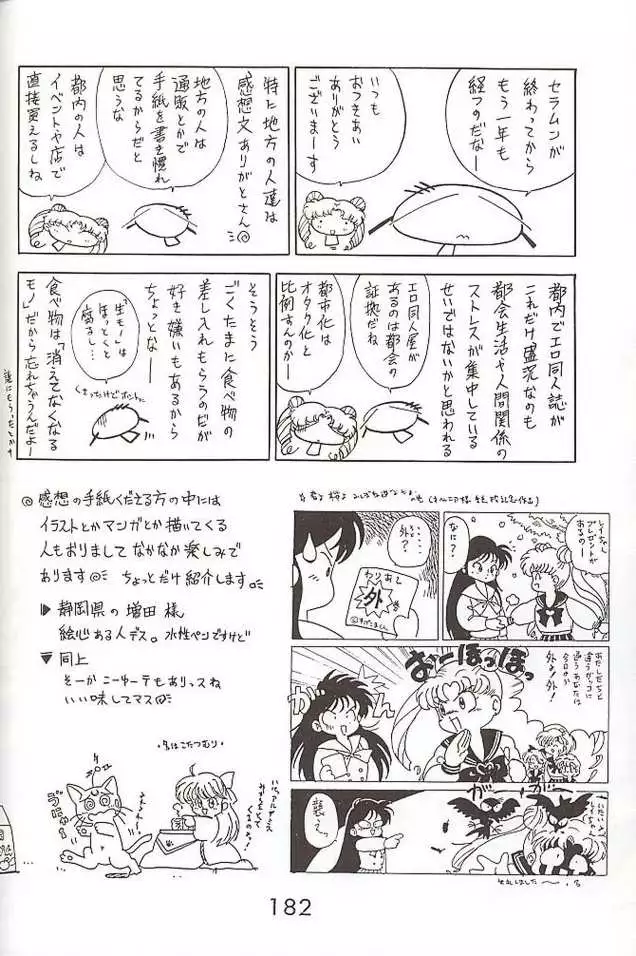 セラムンが
終わってから
もう一年も
経つのだなー
いつも
おつきあい
ありがとう
ございまーす
特に地方の人達は
感想文ありがとさん
地方の人は
通販とかで
手紙を書き慣れ
てるからだと
思うな
都内の人は
イベントや店で
直接買えるしね
都内でエロ同人誌が
これだけ盛況なのも
都会生活や人間関係の
ストレスが集中している
せいではないかと思われる
エロ同人屋が
あるのは都会の
証拠だね
都市化は
オタク化と
比例すんのかー
そうそう
ごくたまに食べ物の
差し入れもらうのだが
好き嫌いもあるから
ちょっとなー
「生モノ」は
ほっとくと
腐るし…
食べ物は「消えてなくなる
モノ」だから忘れちゃうんだよー
誰にもらったとか
◎感想の手紙くださる方の中には
イラストとかマンガとか描いてくる
人もおりまして なかなか楽しみで
あります◎ ちょっとだけ紹介します◎
▶静岡県の増田様
絵心ある人デス。水性ペンですけど
▼同上
そーかこーゆーテもありっスね
いい味してマス◎
レイちゃん
プレゼントが
あるの♡
なに?
外…
?
わりあて
外
おーほっほっ
外!外!
がーん
・冬はこたつむり・
182